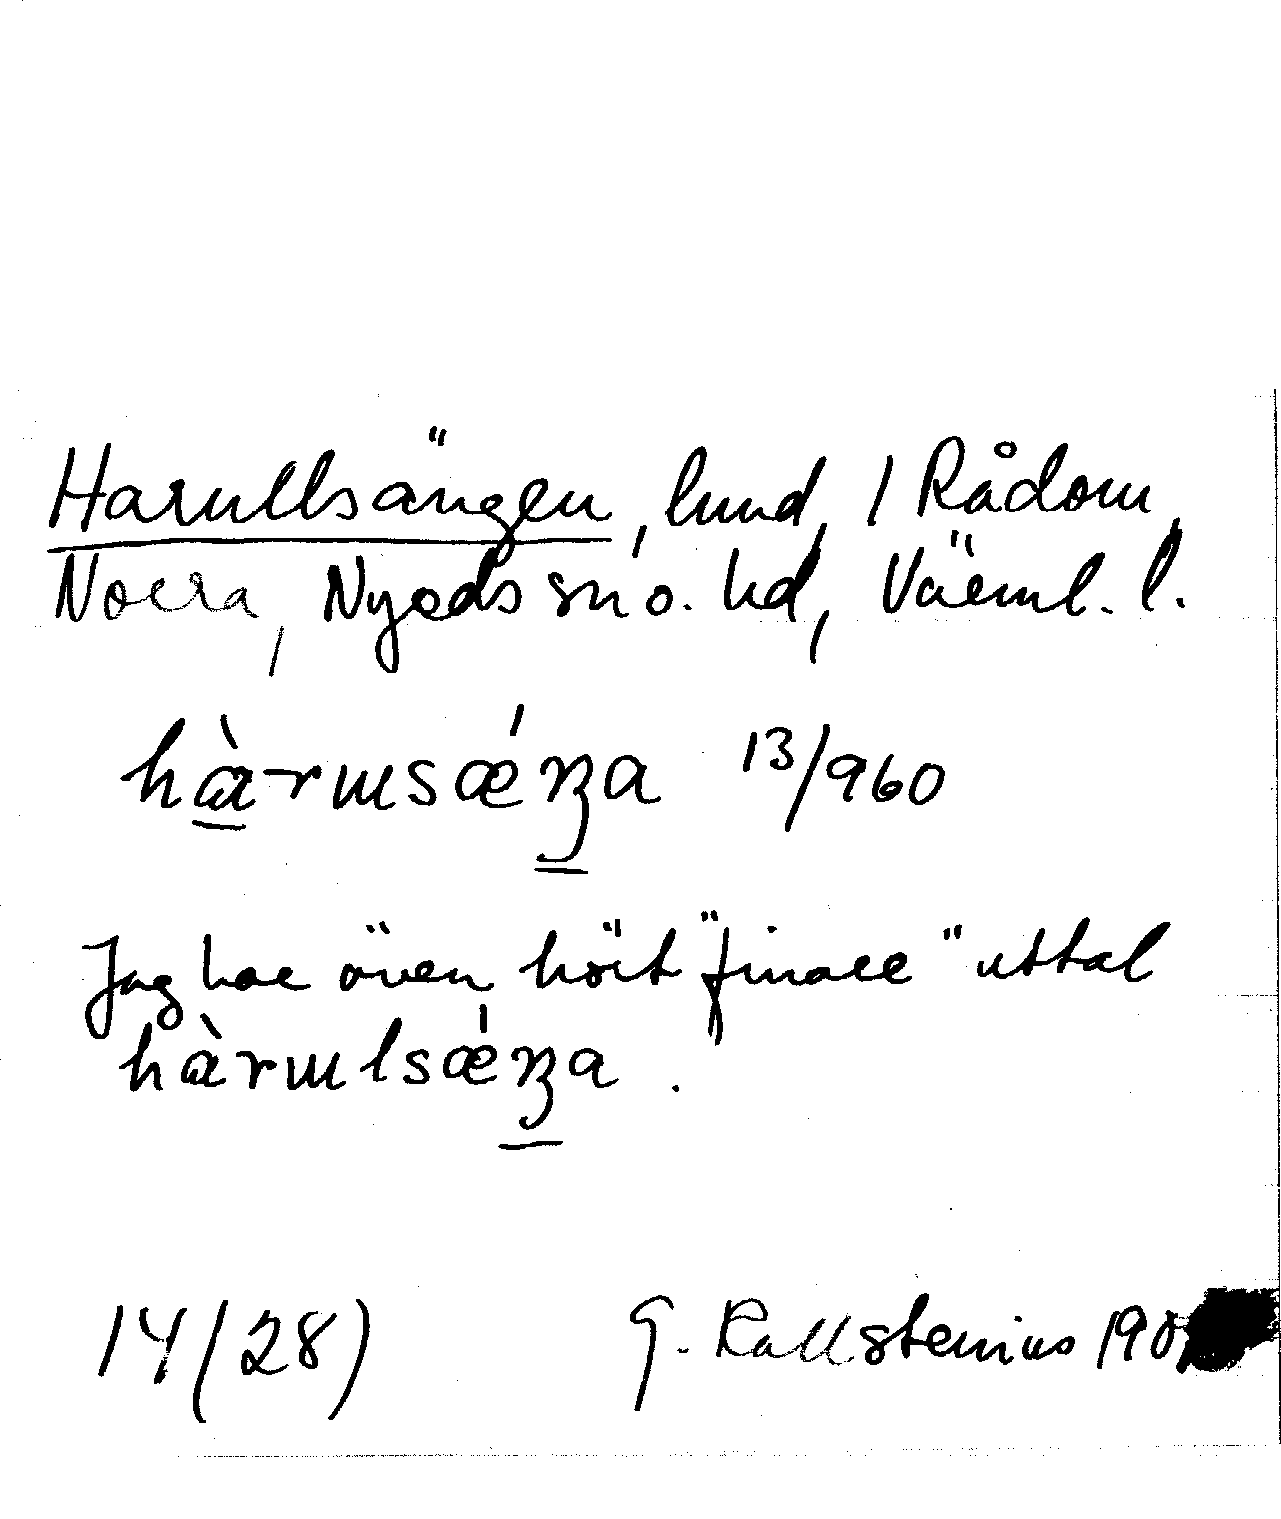 Harullsängen, lund, 1 Rådom,
Norra, Nyeds sn o. hd, Värml. l.
hàrɯsǽŋa 13/960
Jag har även hört "finare" uttal
hàrɯlsǽŋa.
14(28) G. Kallstenius 190